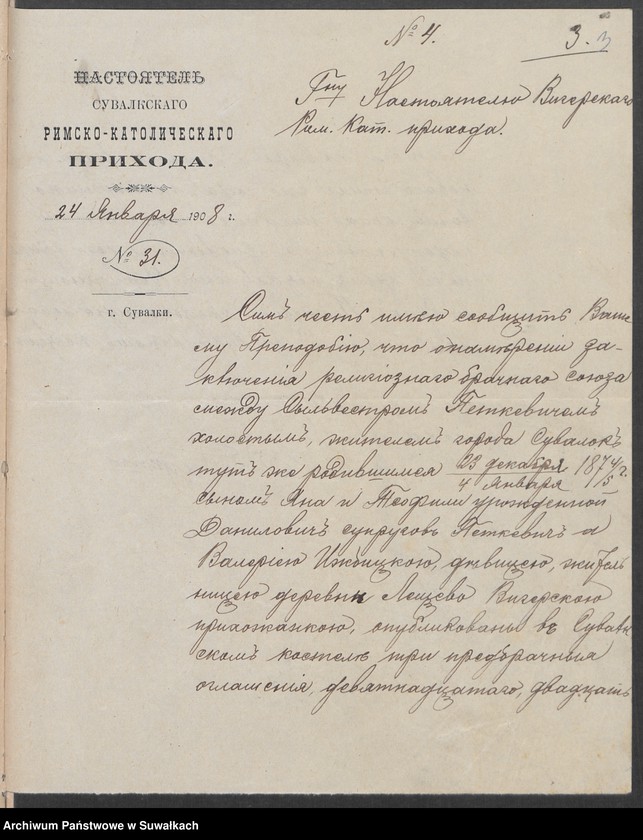 № 4.
3. 3
НАСТОЯТЕЛЬ
СУВАЛКСКАГО
РИМСКО-КАТОЛИЧЕСКАГО
ПРИХОДА.
24 Января 1908 г.
№ 31.
г. Сувалки.
Гну Настоятелю Вигерскаго
Рим. Кат. прихода.
Симъ честь имѣю сообщить Ваше
му Преподобію, что о намѣреніи за-
ключенія религіознаго брачнаго союза
между Сильвестромъ Петкевичемъ
холостымъ, жителемъ города Сувалокъ
тутъ же родившимся 23 декабря / 4 Января 1874/5 г.
сыномъ Яна и Теофили урожденной
Даниловичъ супруговъ Петкевичъ а
Валеріею Ижбицкою, дѣвицею, житель
ницею деревни Лещево Вигерскою
прихожанкою, опубликованы въ Сувалк
скомъ костелѣ три предбрачныя
оглашенія, девятнадцатаго, двадцать
Archiwum Państwowe w Suwałkach